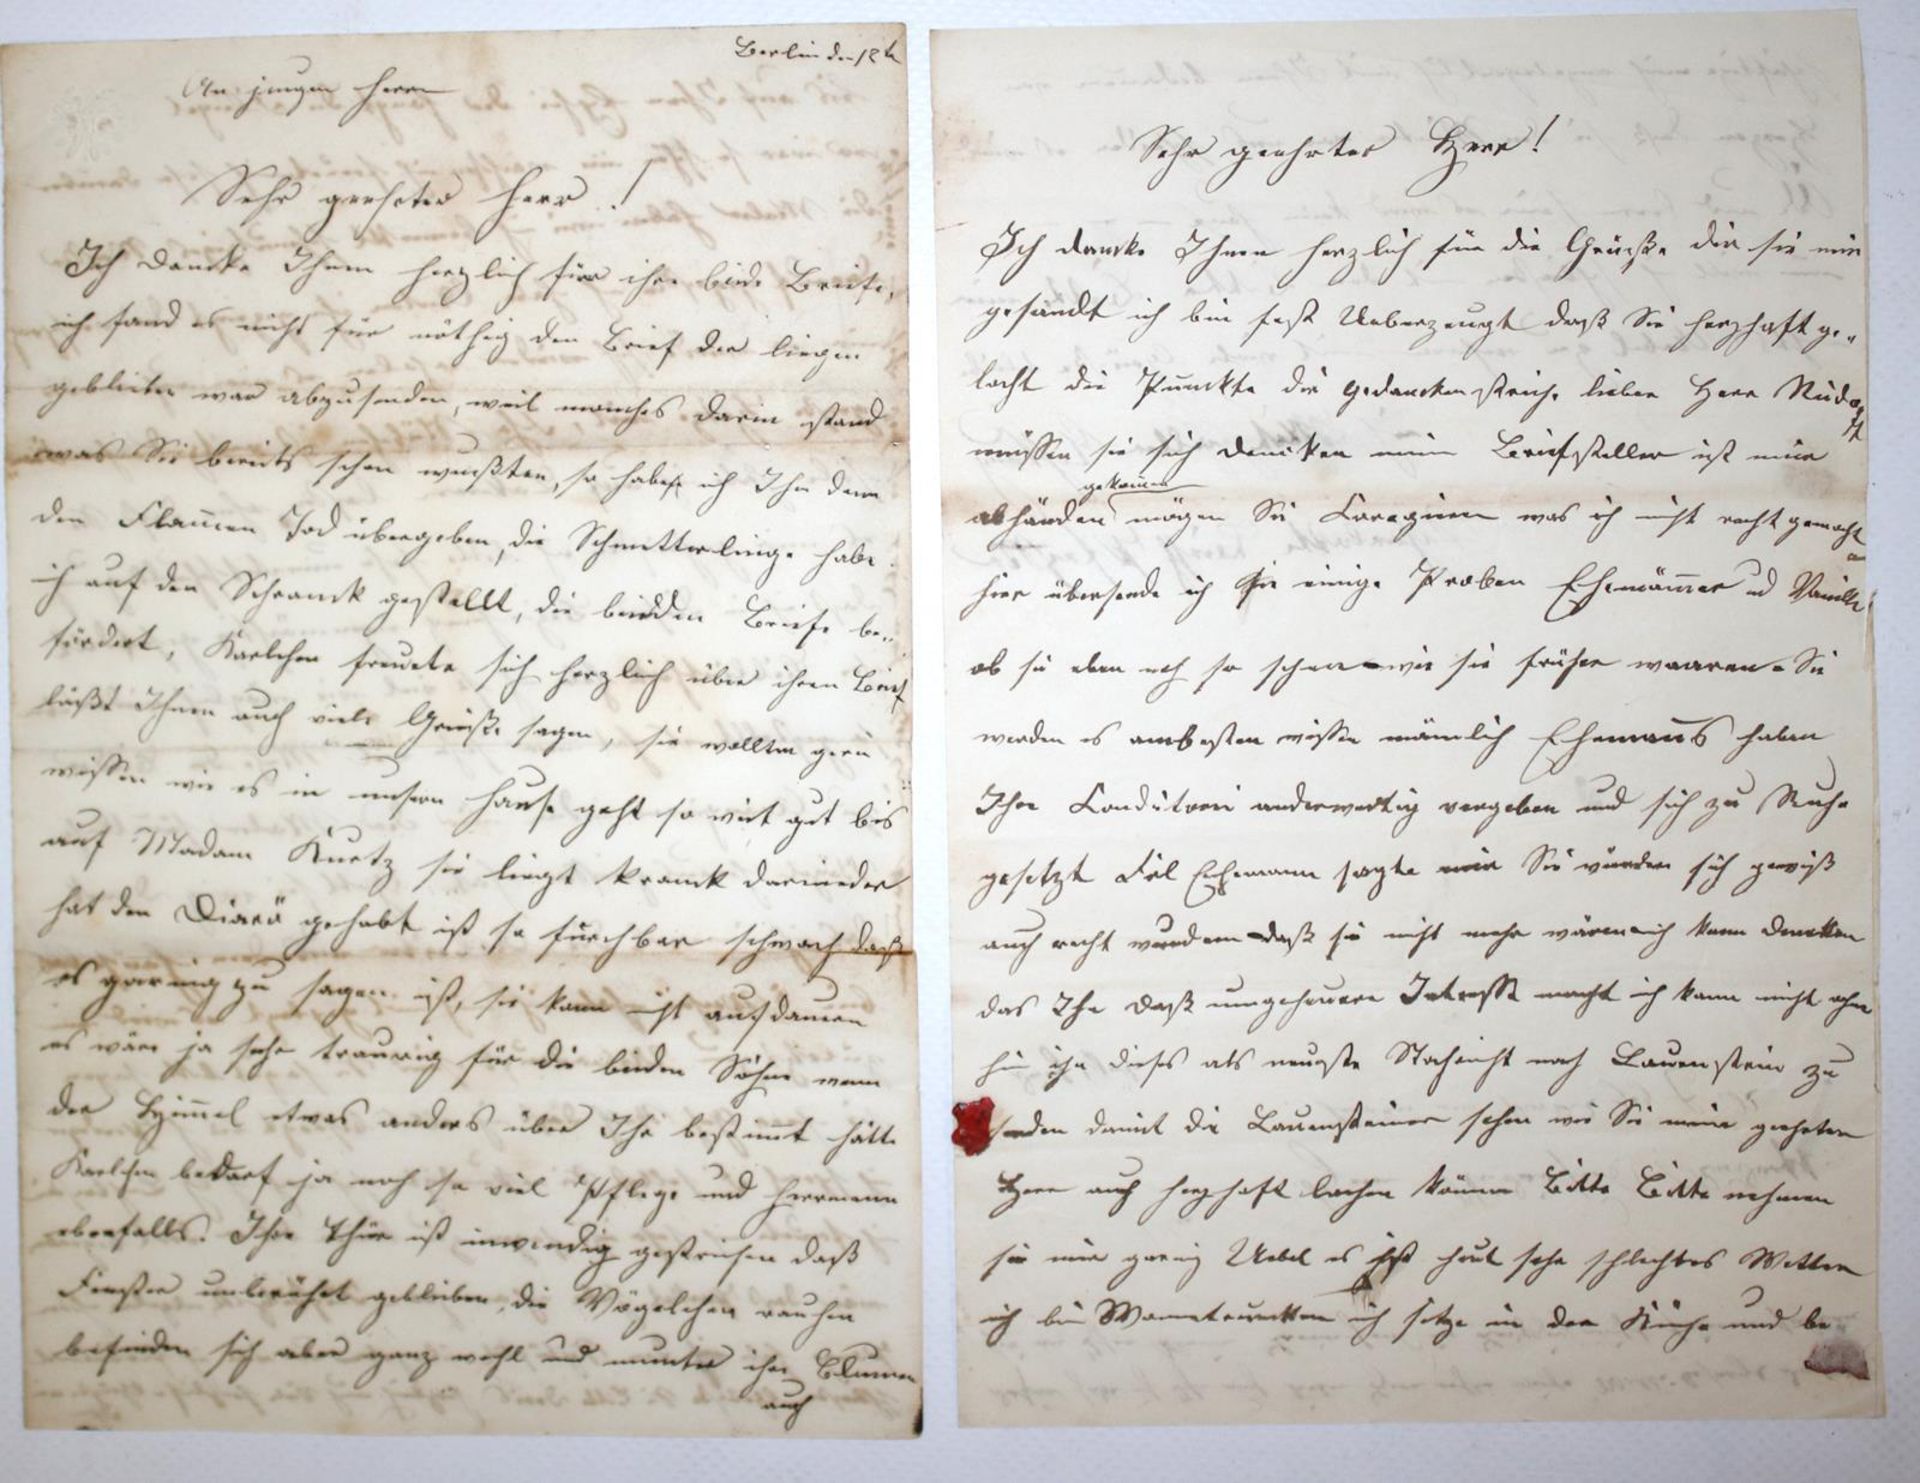 Berlin den 12t
An jungen Herrn
Sehr geehrter Herr!
Ich dancke Ihnen herzlich für ihre beide Briefe,
ich fand es nicht für nöthig den Brief der liegen
geblieben war abzusenden, weil manches darin stand
was Sie bereits schon wußten, so habe ich Ihn dem
den Flam̅en Tod übergeben, die Schmetterlinge habe
ich auf den Schranck gestellt, die beiden Briefe be„
fördert, Karlchen freuete sich herzlich über ihren Brief
läßt Ihnen auch viele Grüße sagen, sie wollten gern
wissen wie es in unsern Hause geht so weit gut bis
auf Madam Kurtz sie liegt kranck darnieder
hat den Diarä gehabt ist so furchbar schwach daß
es garnig zu sagen ist, sie kann nicht aufdauern
es wäre ja sehr traurig für die beiden Söhne wenn
der Him̅el etwas anders über Ihr bestim̅t hätte
Karlchen bedarf ja noch so viel Pflege und Herrmann
ebenfalls. Ihre Thür ist inwendig gestrichen daß
Fenster unberührt geblieben, die Vögelchen rauhen
befinden sich aber ganz wohl und munter ihre Blumen
auch
Sehr geehrter Herr!
Ich dancke Ihnen herzlich für die Grüße die sie mir
gesandt ich bin fest Ueberzeugt daß Sie herzhaft ge„
lacht die Punckte die gedanckenstriche lieber Herr Rudolph
müssen sie sich dencken mein Briefsteller ist mir
gekom̅en
abhänden mögen Sie Coregiren was ich nicht recht gemacht
hier übersende ich Sie einige Proben Ehemäner ud Vanille
ob sie eben noch so schön wie sie früher waaren. Sie
werden es ambesten wissen nämlich Ehemans haben
Ihre Conditorei anderweitig vergeben und sich zu Ruhe
gesetzt Frl Ehemann sagte mir Sie würden sich gewiß
auch recht wundern daß sie nicht mehr wären ich kann dencken
das Ihn daß ungeheuere Intresse macht ich kann nicht ohne
hin ihn dieses als neuste Nachricht nach Lauenstein zu
senden damit die Lauensteiner sehen wie Sie mein geehrter
Herr auch herzhaft lachen können Bitte Bitte nehmen
sie mir garnig Uebel es ist heut sehr schlechtes Wetter
ich bin ich sitze in der Küche und be